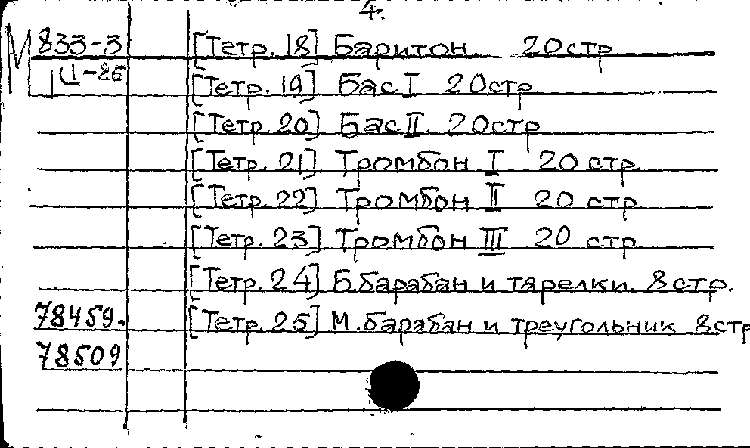 4.
М 833-3 [Тетр. 18] Баритон 20 стр
[Тетр. 19] Бас I 20 стр
[Тетр. 20] Бас II. 20 стр
[Тетр. 21] Тромбон I 20 стр.
[Тетр. 22] Тромбон II 20 стр.
[Тетр. 23] Тромбон III 20 стр
[Тетр. 24] Б.барабан и тарелки. 8 стр.
78459. [Тетр. 25] М.барабан и треугольник 8 стр
78509